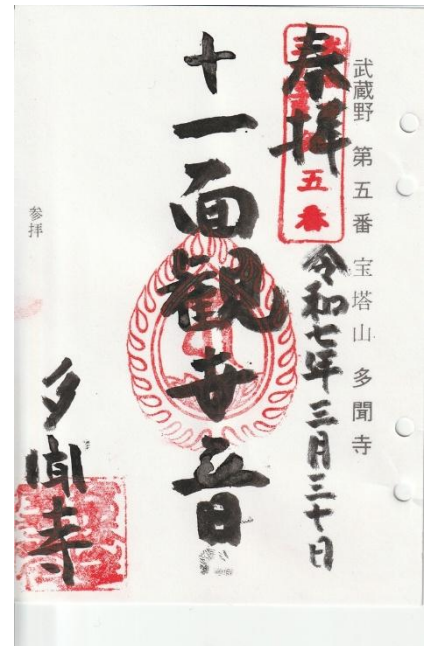 武蔵野 第五番 宝塔山 多聞寺
奉拝
五番
令和七年三月三十日
十一面観世音
参拝
多聞寺